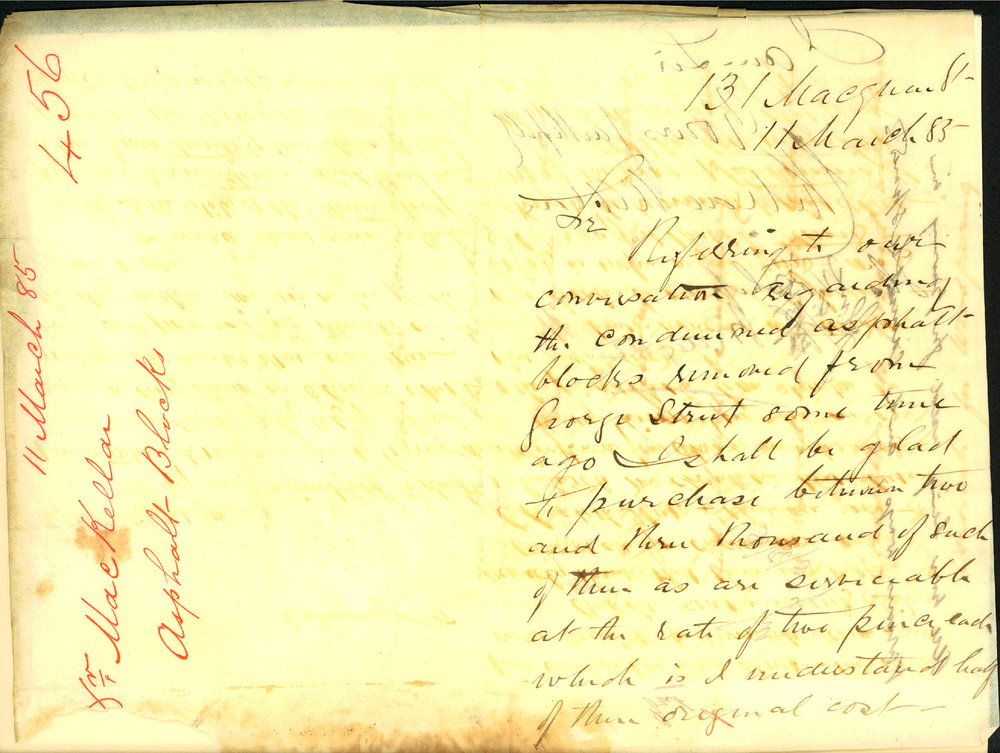 456
11 March 85
Dr MacKellar
Asphalt Blocks
131 Macquarie St
11 March 85
Sir
Referring to our
conversation regarding
the condemned asphalt
blocks removed from
George Street some time
ago I shall be glad
to purchase between two
and three thousand of such
of them as are serviceable
at the rate of two pence each
which is I understand half
of their original cost—